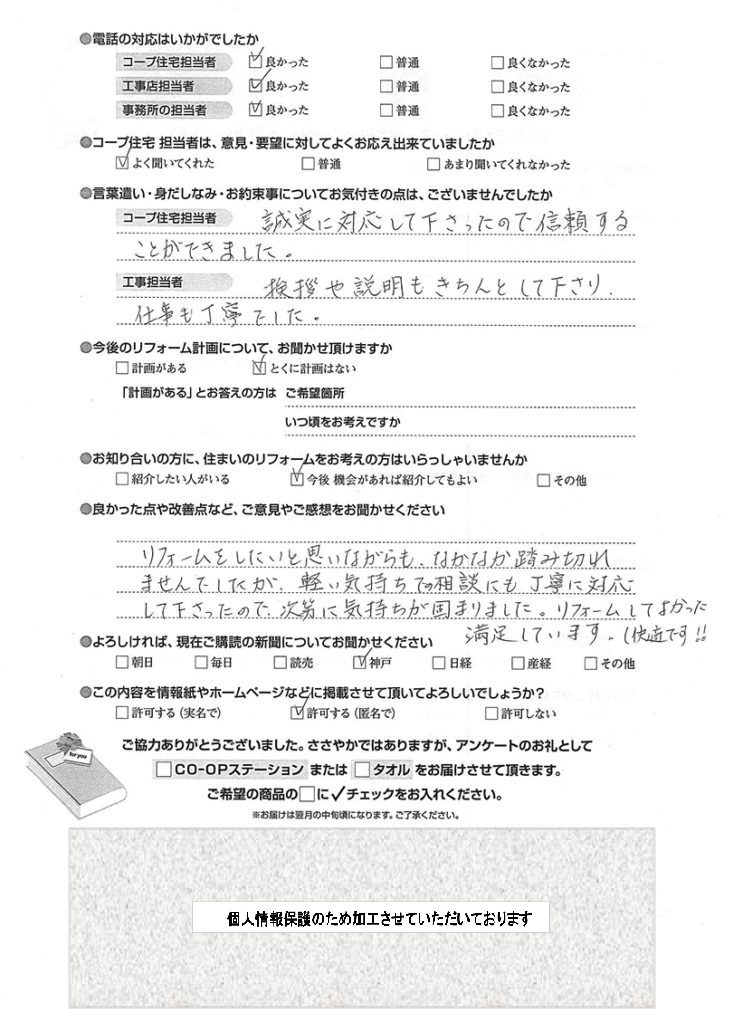 ●電話の対応はいかがでしたか
コープ住宅担当者 ☑良かった □普通 □良くなかった
工事店担当者 ☑良かった □普通 □良くなかった
事務所の担当者 ☑良かった □普通 □良くなかった
●コープ住宅 担当者は、意見・要望に対してよくお応え出来ていましたか
☑よく聞いてくれた □普通 □あまり聞いてくれなかった
●言葉遣い・身だしなみ・お約束事についてお気付きの点は、ございませんでしたか
コープ住宅担当者 誠実に対応して下さったので信頼する
ことができました。
工事担当者 挨拶や説明もきちんとして下さり、
仕事も丁寧でした。
●今後のリフォーム計画について、お聞かせ頂けますか
□計画がある ☑とくに計画はない
「計画がある」とお答えの方は ご希望箇所
いつ頃をお考えですか
●お知り合いの方に、住まいのリフォームをお考えの方はいらっしゃいませんか
□紹介したい人がいる ☑今後 機会があれば紹介してもよい □その他
●良かった点や改善点など、ご意見やご感想をお聞かせください
リフォームをしたいと思いながらも、なかなか踏み切れ
ませんでしたが、軽い気持ちでの相談にも丁寧に対応
して下さったので、次第に気持ちが固まりました。リフォームしてよかった
満足しています。(快適です!!
●よろしければ、現在ご購読の新聞についてお聞かせください
□朝日 □毎日 □読売 ☑神戸 □日経 □産経 □その他
●この内容を情報紙やホームページなどに掲載させて頂いてよろしいでしょうか？
□許可する（実名で） ☑許可する（匿名で） □許可しない
for you
ご協力ありがとうございました。ささやかではありますが、アンケートのお礼として
□CO-OPステーション または □タオル をお届けさせて頂きます。
ご希望の商品の□に✓チェックをお入れください。
※お届けは翌月の中旬頃になります。ご了承ください。
個人情報保護のため加工させていただいております